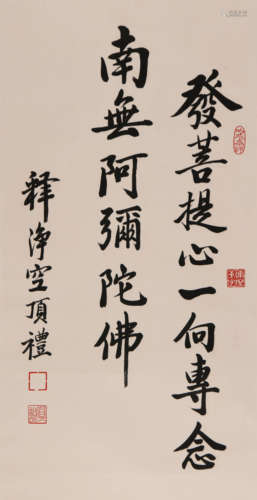 發菩提心一向專念
南無阿彌陀佛
释淨空頂禮